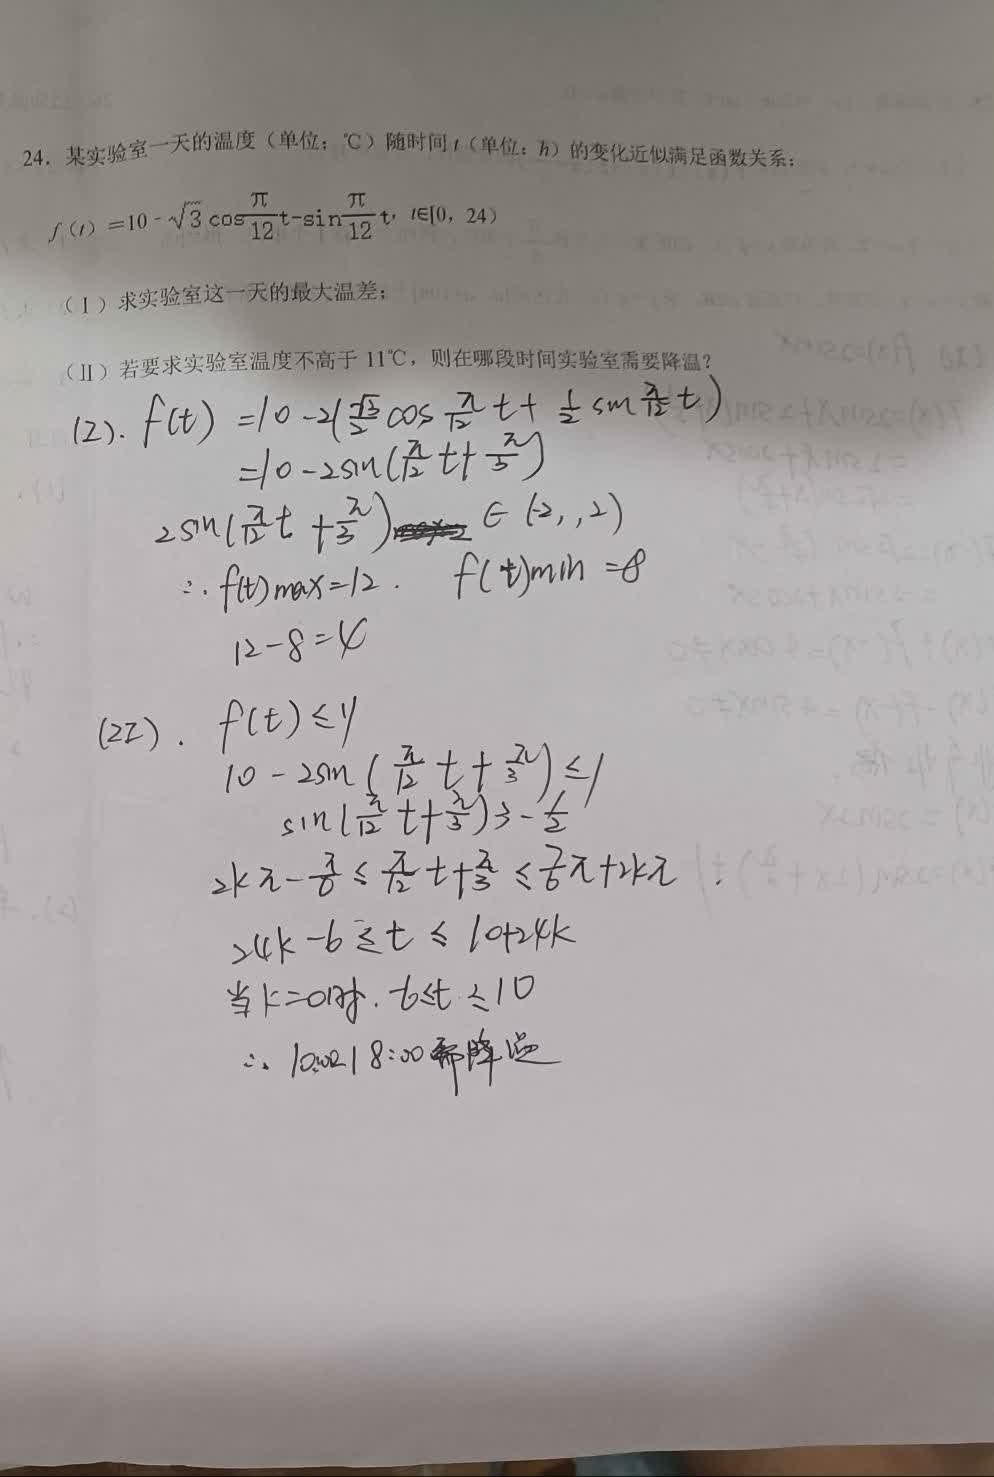 24. 某实验室一天的温度（单位：℃）随时间 t（单位：h）的变化近似满足函数关系：
f(t)=10-√3cos π/12 t-sin π/12 t, t∈[0, 24)
（Ⅰ）求实验室这一天的最大温差；
（Ⅱ）若要求实验室温度不高于 11℃，则在哪段时间实验室需要降温？
(I). f(t) =10-2(√3/2 cos π/12 t + 1/2 sin π/12 t)
=10-2sin(π/12 t+π/3)
2sin(π/12 t +π/3) ∈ (-2,,2)
∴ f(t)max=12. f(t)min=8
12-8=4
(II). f(t)≤11
10-2sin(π/12 t+π/3)≤11
sin(π/12 t+π/3)≥-1/2
2kπ-π/6≤π/12 t+π/3≤7/6π+2kπ.
24k-6≤t≤10+24k
当k=0时. -6≤t≤10
∴ 18:00需降温